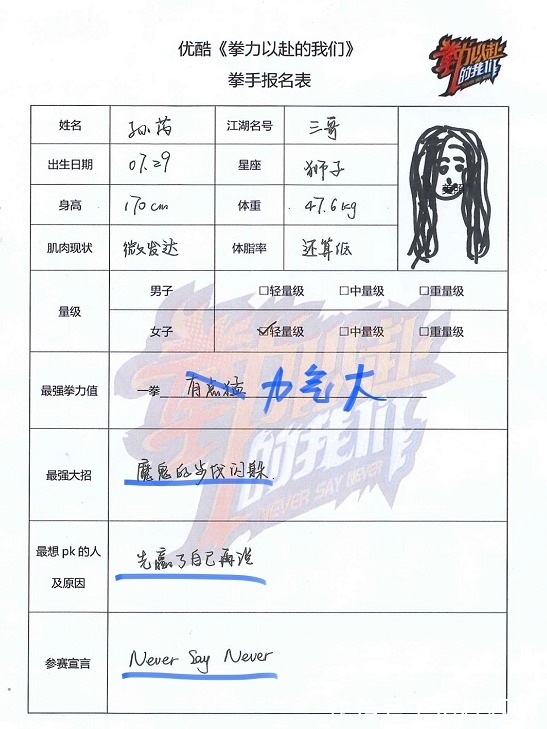 优酷《拳力以赴的我们》
拳手报名表
拳力以赴的我们
姓名 孙芮 江湖名号 三哥
出生日期 07.29 星座 狮子
身高 170cm 体重 47.6kg
肌肉现状 微发达 体脂率 还算低
量级 男子 □轻量级 □中量级 □重量级
女子 ☑轻量级 □中量级 □重量级
最强拳力值 一拳 有点猛 力气大
最强大招 魔鬼的步伐闪躲.
最想pk的人
及原因
先赢了自己再说
参赛宣言 Never Say Never
拳力以赴的我们
NEVER SAY NEVER